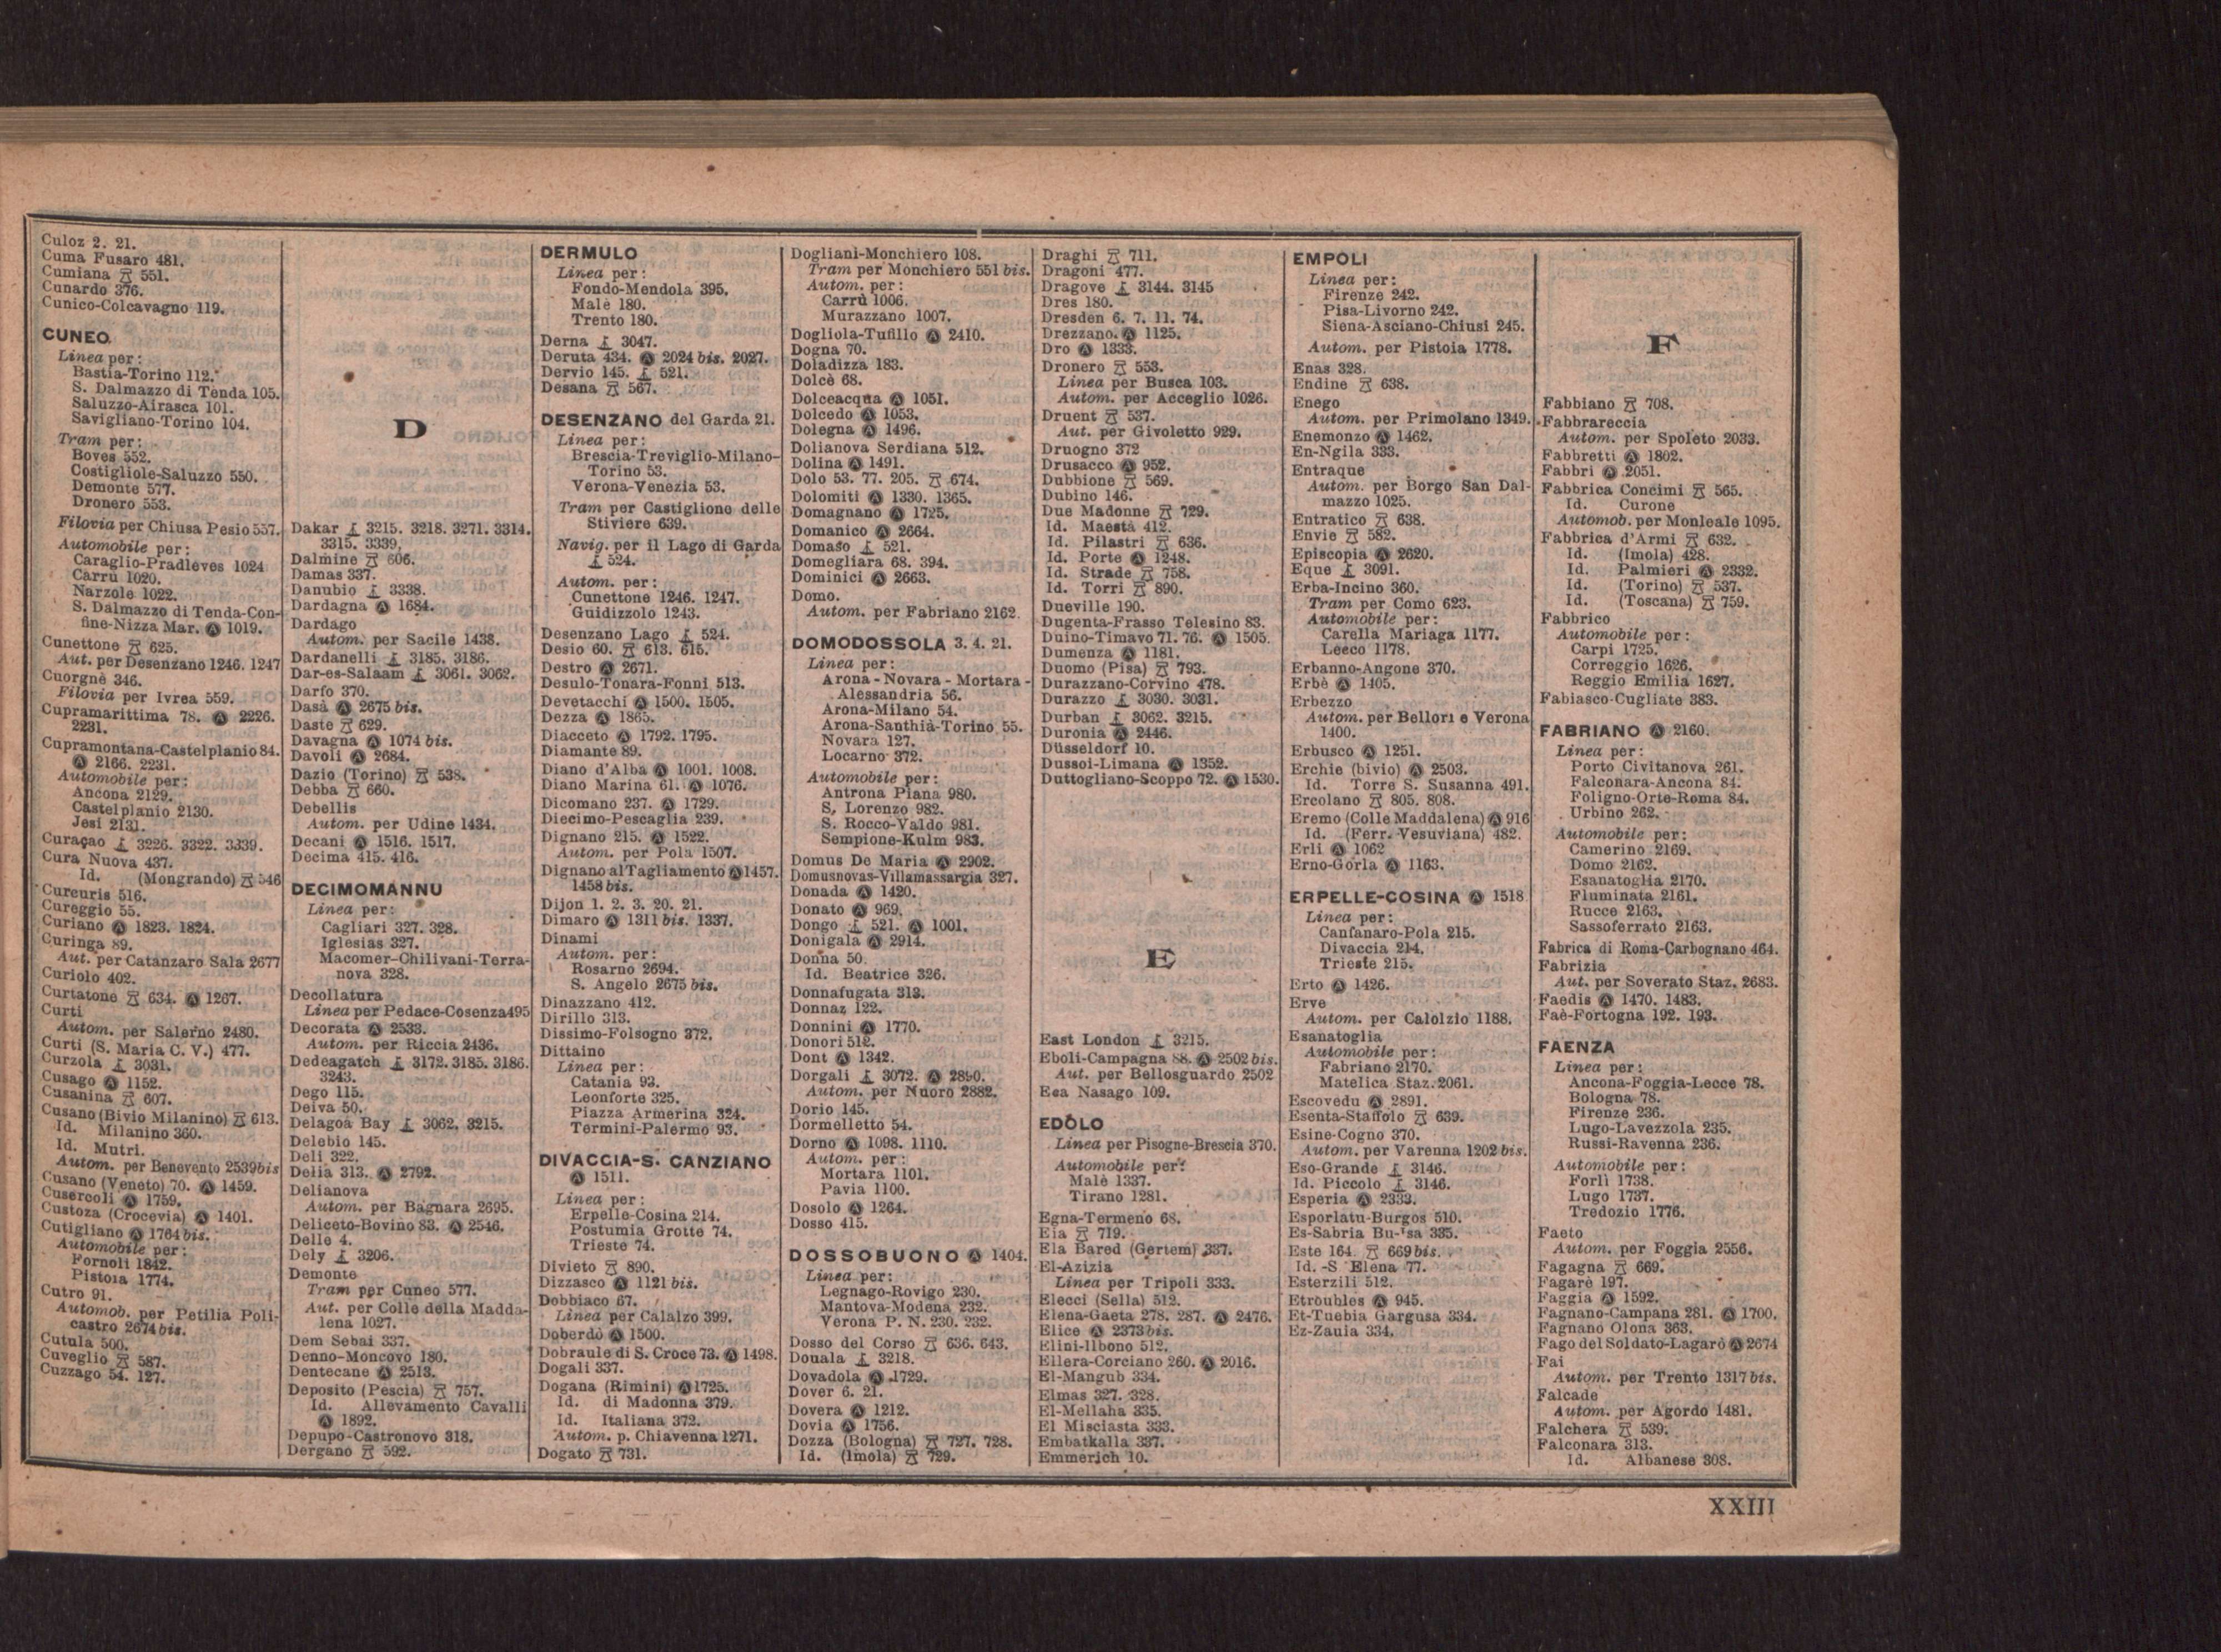 Culoz 2. 21.
Cuma Fusaro 481.
Cumiana 551.
Cunardo 376.
Cunico-Colcavagno 119.
CUNEO.
Linea per:
Bastia-Torino 112.
S. Dalmazzo di Tenda 105.
Saluzzo-Airasca 101.
Savigliano-Torino 104.
Tram per:
Boves 552.
Costigliole-Saluzzo 550.
Demonte 577.
Dronero 553.
Filovia per Chiusa Pesio 557.
Automobile per:
Caraglio-Pradleves 1024
Carrù 1020.
Narzole 1022.
S. Dalmazzo di Tenda-Con-
fine-Nizza Mar. Ⓐ 1019.
Cunettone 625.
Aut. per Desenzano 1246. 1247
Cuorgnè 346.
Filovia per Ivrea 559.
Cupramarittima 78. Ⓐ 2226.
2231.
Cupramontana-Castelplanio 84.
Ⓐ 2166. 2231.
Automobile per:
Ancona 2129.
Castelplanio 2130.
Jesi 2131.
Curaçao 3226. 3322. 3339.
Cura Nuova 437.
Id. (Mongrando) 546
Cureuris 516.
Cureggio 55.
Curiano Ⓐ 1823. 1824.
Curinga 89.
Aut. per Catanzaro Sala 2677
Curiolo 402.
Curtatone 634. Ⓐ 1267.
Curti
Autom. per Salerno 2480.
Curti (S. Maria C. V.) 477.
Curzola 3031.
Cusago Ⓐ 1152.
Cusanina 607.
Cusano (Bivio Milanino) 613.
Id. Milanino 360.
Id. Mutri.
Autom. per Benevento 2539bis
Cusano (Veneto) 70. Ⓐ 1459.
Cusercoli Ⓐ 1759.
Custoza (Crocevia) Ⓐ 1401.
Cutigliano Ⓐ 1764bis.
Automobile per:
Fornoli 1842.
Pistoia 1774.
Cutro 91.
Automob. per Petilia Poli-
castro 2674bis.
Cutula 500.
Cuveglio 587.
Cuzzago 54. 127.
D
Dakar 3215. 3218. 3271. 3314.
3315. 3339.
Dalmine 606.
Damas 337.
Danubio 3338.
Dardagna Ⓐ 1684.
Dardago
Autom. per Sacile 1438.
Dardanelli 3185. 3186.
Dar-es-Salaam 3061. 3062.
Darfo 370.
Dasà Ⓐ 2675 bis.
Daste 629.
Davagna Ⓐ 1074 bis.
Davoli Ⓐ 2684.
Dazio (Torino) 538.
Debba 660.
Debellis
Autom. per Udine 1434.
Decani Ⓐ 1516. 1517.
Decima 415. 416.
DECIMOMANNU
Linea per:
Cagliari 327. 328.
Iglesias 327.
Macomer-Chilivani-Terra-
nova 328.
Decollatura
Linea per Pedace-Cosenza495
Decorata Ⓐ 2533.
Autom. per Riccia 2436.
Dedeagatch 3172. 3185. 3186.
3243.
Dego 115.
Deiva 50.
Delagoa Bay 3062. 3215.
Delebio 145.
Deli 322.
Delia 313. Ⓐ 2792.
Delianova
Autom. per Bagnara 2695.
Deliceto-Bovino 83. Ⓐ 2546.
Delle 4.
Dely 3206.
Demonte
Tram per Cuneo 577.
Aut. per Colle della Madda-
lena 1027.
Dem Sebai 337.
Denno-Moncovo 180.
Dentecane Ⓐ 2513.
Deposito (Pescia) 757.
Id. Allevamento Cavalli
Ⓐ 1892.
Depupo-Castronovo 318.
Dergano 592.
DERMULO
Linea per:
Fondo-Mendola 395.
Malè 180.
Trento 180.
Derna 3047.
Deruta 434. Ⓐ 2024 bis. 2027.
Dervio 145. 521.
Desana 567.
DESENZANO del Garda 21.
Linea per:
Brescia-Treviglio-Milano-
Torino 53.
Verona-Venezia 53.
Tram per Castiglione delle
Stiviere 639.
Navig. per il Lago di Garda
524.
Autom. per:
Cunettone 1246. 1247.
Guidizzolo 1243.
Desenzano Lago 524.
Desio 60. 613. 615.
Destro Ⓐ 2671.
Desulo-Tonara-Fonni 513.
Devetacchi Ⓐ 1500. 1505.
Dezza Ⓐ 1865.
Diacceto Ⓐ 1792. 1795.
Diamante 89.
Diano d'Alba Ⓐ 1001. 1008.
Diano Marina 61. Ⓐ 1076.
Dicomano 237. Ⓐ 1729.
Diecimo-Pescaglia 239.
Dignano 215. Ⓐ 1522.
Autom. per Pola 1507.
Dignano al Tagliamento Ⓐ 1457.
1458 bis.
Dijon 1. 2. 3. 20. 21.
Dimaro Ⓐ 1311 bis. 1337.
Dinami
Autom. per:
Rosarno 2694.
S. Angelo 2675 bis.
Dinazzano 412.
Dirillo 313.
Dissimo-Folsogno 372.
Dittaino
Linea per:
Catania 93.
Leonforte 325.
Piazza Armerina 324.
Termini-Palermo 93.
DIVACCIA-S. CANZIANO
Ⓐ 1511.
Linea per:
Erpelle-Cosina 214.
Postumia Grotte 74.
Trieste 74.
Divieto 890.
Dizzasco Ⓐ 1121 bis.
Dobbiaco 67.
Linea per Calalzo 399.
Doberdò Ⓐ 1500.
Dobraule di S. Croce 73. Ⓐ 1498.
Dogali 337.
Dogana (Rimini) Ⓐ 1725.
Id. di Madonna 379.
Id. Italiana 372.
Autom. p. Chiavenna 1271.
Dogato 731.
Dogliani-Monchiero 108.
Tram per Monchiero 551 bis.
Autom. per:
Carrù 1006.
Murazzano 1007.
Dogliola-Tufillo Ⓐ 2410.
Dogna 70.
Doladizza 183.
Dolcè 68.
Dolceacqua Ⓐ 1051.
Dolcedo Ⓐ 1053.
Dolegna Ⓐ 1496.
Dolianova Serdiana 512.
Dolina Ⓐ 1491.
Dolo 53. 77. 205. 674.
Dolomiti Ⓐ 1330. 1365.
Domagnano Ⓐ 1725.
Domanico Ⓐ 2664.
Domaso 521.
Domegliara 68. 394.
Dominici Ⓐ 2663.
Domo.
Autom. per Fabriano 2162.
DOMODOSSOLA 3. 4. 21.
Linea per:
Arona - Novara - Mortara -
Alessandria 56.
Arona-Milano 54.
Arona-Santhià-Torino 55.
Novara 127.
Locarno 372.
Automobile per:
Antrona Piana 980.
S. Lorenzo 982.
S. Rocco-Valdo 981.
Sempione-Kulm 983.
Domus De Maria Ⓐ 2902.
Domusnovas-Villamassargia 327.
Donada Ⓐ 1420.
Donato Ⓐ 969.
Dongo 521. Ⓐ 1001.
Donigala Ⓐ 2914.
Donna 50.
Id. Beatrice 326.
Donnafugata 313.
Donnaz 122.
Donnini Ⓐ 1770.
Donori 512.
Dont Ⓐ 1342.
Dorgali 3072. Ⓐ 2890.
Autom. per Nuoro 2882.
Dorio 145.
Dormelletto 54.
Dorno Ⓐ 1098. 1110.
Autom. per:
Mortara 1101.
Pavia 1100.
Dosolo Ⓐ 1264.
Dosso 415.
DOSSOBUONO Ⓐ 1404.
Linea per:
Legnago-Rovigo 230.
Mantova-Modena 232.
Verona P. N. 230. 232.
Dosso del Corso 636. 643.
Douala 3218.
Dovadola Ⓐ 1729.
Dover 6. 21.
Dovera Ⓐ 1212.
Dovia Ⓐ 1756.
Dozza (Bologna) 727. 728.
Id. (Imola) 729.
Draghi 711.
Dragoni 477.
Dragove 3144. 3145
Dres 180.
Dresden 6. 7. 11. 74.
Drezzano. Ⓐ 1125.
Dro Ⓐ 1333.
Dronero 553.
Linea per Busca 103.
Autom. per Acceglio 1026.
Druent 537.
Aut. per Givoletto 929.
Druogno 372
Drusacco Ⓐ 952.
Dubbione 569.
Dubino 146.
Due Madonne 729.
Id. Maestà 412.
Id. Pilastri 636.
Id. Porte Ⓐ 1248.
Id. Strade 758.
Id. Torri 890.
Dueville 190.
Dugenta-Frasso Telesino 83.
Duino-Timavo 71. 76. Ⓐ 1505.
Dumenza Ⓐ 1181.
Duomo (Pisa) 793.
Durazzano-Corvino 478.
Durazzo 3030. 3031.
Durban 3062. 3215.
Duronia Ⓐ 2446.
Düsseldorf 10.
Dussoi-Limana Ⓐ 1352.
Duttogliano-Scoppo 72. Ⓐ 1530.
E
East London 3215.
Eboli-Campagna 88. Ⓐ 2502 bis.
Aut. per Bellosguardo 2502
Eea Nasago 109.
EDOLO
Linea per Pisogne-Brescia 370.
Automobile per:
Malè 1337.
Tirano 1281.
Egna-Termeno 68.
Eia 719.
Ela Bared (Gertem) 337.
El-Azizia
Linea per Tripoli 333.
Elecci (Sella) 512.
Elena-Gaeta 278. 287. Ⓐ 2476.
Elice Ⓐ 2373bis.
Elini-Ilbono 512.
Ellera-Corciano 260. Ⓐ 2016.
El-Mangub 334.
Elmas 327. 328.
El-Mellaha 335.
El Misciasta 333.
Embatkalla 337.
Emmerich 10.
EMPOLI
Linea per:
Firenze 242.
Pisa-Livorno 242.
Siena-Asciano-Chiusi 245.
Autom. per Pistoia 1778.
Enas 328.
Endine 638.
Enego
Autom. per Primolano 1349.
Enemonzo Ⓐ 1462.
En-Ngila 333.
Entraque
Autom. per Borgo San Dal-
mazzo 1025.
Entratico 638.
Envie 582.
Episcopia Ⓐ 2620.
Eque 3091.
Erba-Incino 360.
Tram per Como 623.
Automobile per:
Carella Mariaga 1177.
Lecco 1178.
Erbanno-Angone 370.
Erbè Ⓐ 1405.
Erbezzo
Autom. per Bellori e Verona
1400.
Erbusco Ⓐ 1251.
Erchie (bivio) Ⓐ 2503.
Id. Torre S. Susanna 491.
Ercolano 805. 808.
Eremo (Colle Maddalena) Ⓐ 916
Id. (Ferr. Vesuviana) 482.
Erli Ⓐ 1062
Erno-Gorla Ⓐ 1163.
ERPELLE-COSINA Ⓐ 1518
Linea per:
Canfanaro-Pola 215.
Divaccia 214.
Trieste 215.
Erto Ⓐ 1426.
Erve
Autom. per Calolzio 1188.
Esanatoglia
Automobile per:
Fabriano 2170.
Matelica Staz. 2061.
Escovedu Ⓐ 2891.
Esenta-Staffolo 639.
Esine-Cogno 370.
Autom. per Varenna 1202 bis.
Eso-Grande 3146.
Id. Piccolo 3146.
Esperia Ⓐ 2333.
Esporlatu-Burgos 510.
Es-Sabria Bu-'sa 335.
Este 164. 669bis.
Id. -S Elena 77.
Esterzili 512.
Etroubles Ⓐ 945.
Et-Tuebia Gargusa 334.
Ez-Zauia 334.
F
Fabbiano 708.
Fabbrareccia
Autom. per Spoleto 2033.
Fabbretti Ⓐ 1802.
Fabbri Ⓐ 2051.
Fabbrica Concimi 565.
Id. Curone
Automob. per Monleale 1095.
Fabbrica d'Armi 632.
Id. (Imola) 428.
Id. Palmieri Ⓐ 2332.
Id. (Torino) 537.
Id. (Toscana) 759.
Fabbrico
Automobile per:
Carpi 1725.
Correggio 1626.
Reggio Emilia 1627.
Fabiasco-Cugliate 383.
FABRIANO Ⓐ 2160.
Linea per:
Porto Civitanova 261.
Falconara-Ancona 84.
Foligno-Orte-Roma 84.
Urbino 262.
Automobile per:
Camerino 2169.
Domo 2162.
Esanatoglia 2170.
Fluminata 2161.
Rucce 2163.
Sassoferrato 2163.
Fabrica di Roma-Carbognano 464.
Fabrizia
Aut. per Soverato Staz. 2683.
Faedis Ⓐ 1470. 1483.
Faè-Fortogna 192. 193.
FAENZA
Linea per:
Ancona-Foggia-Lecce 78.
Bologna 78.
Firenze 236.
Lugo-Lavezzola 235.
Russi-Ravenna 236.
Automobile per:
Forlì 1738.
Lugo 1737.
Tredozio 1776.
Faeto
Autom. per Foggia 2556.
Fagagna 669.
Fagarè 197.
Faggia Ⓐ 1592.
Fagnano-Campana 281. Ⓐ 1700.
Fagnano Olona 363.
Fago del Soldato-Lagarò Ⓐ 2674
Fai
Autom. per Trento 1317bis.
Falcade
Autom. per Agordo 1481.
Falchera 539.
Falconara 313.
Id. Albanese 308.
XXIII